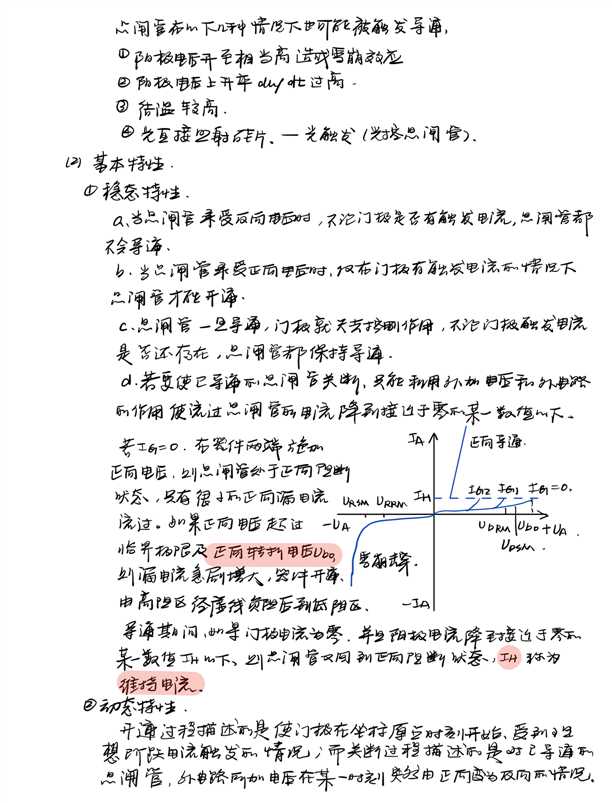 晶闸管在以下几种情况下也可能被触发导通,
① 阳极电压升至相当高造成雪崩效应
② 阳极电压上升率 du/dt 过高.
③ 结温较高.
④ 光直接照射硅片、— 光触发 (光控晶闸管).
(2) 基本特性.
① 稳态特性.
a、当晶闸管承受反向电压时,不论门极是否有触发电流,晶闸管都
不会导通.
b. 当晶闸管承受正向电压时,仅在门极有触发电流的情况下
晶闸管才能开通.
c. 晶闸管一旦导通,门极就失去控制作用,不论门极触发电流
是否还存在,晶闸管都保持导通.
d. 若要使已导通的晶闸管关断,只能利用外加电压和外电路
的作用使流过晶闸管的电流降到接近于零的某一数值以下。
若 IG=0. 在器件两端施加
正向电压,则晶闸管处于正向阻断
状态,只有很小的正向漏电流
流过。如果正向电压超过
临界极限及正向转折电压Ubo,
则漏电流急剧增大,器件开通.
由高阻区经虚线负阻区到低阻区.
IA
正向导通.
IH
IG2 IG1 IG=0.
URSM URRM
-UA
UDRM Ubo +UA
UDSM.
雪崩击穿.
-IA
导通期间,如果门极电流为零.并且阳极电流降到接近于零的
某一数值IH以下、则晶闸管又回到正向阻断状态, IH 称为
维持电流。
② 动态特性.
开通过程描述的是使门极在坐标原点时刻开始、受到理
想阶跃电流触发的情况;而关断过程描述的是对已导通的
晶闸管,外电路所加电压在某一时刻突然由正向变为反向的情况。